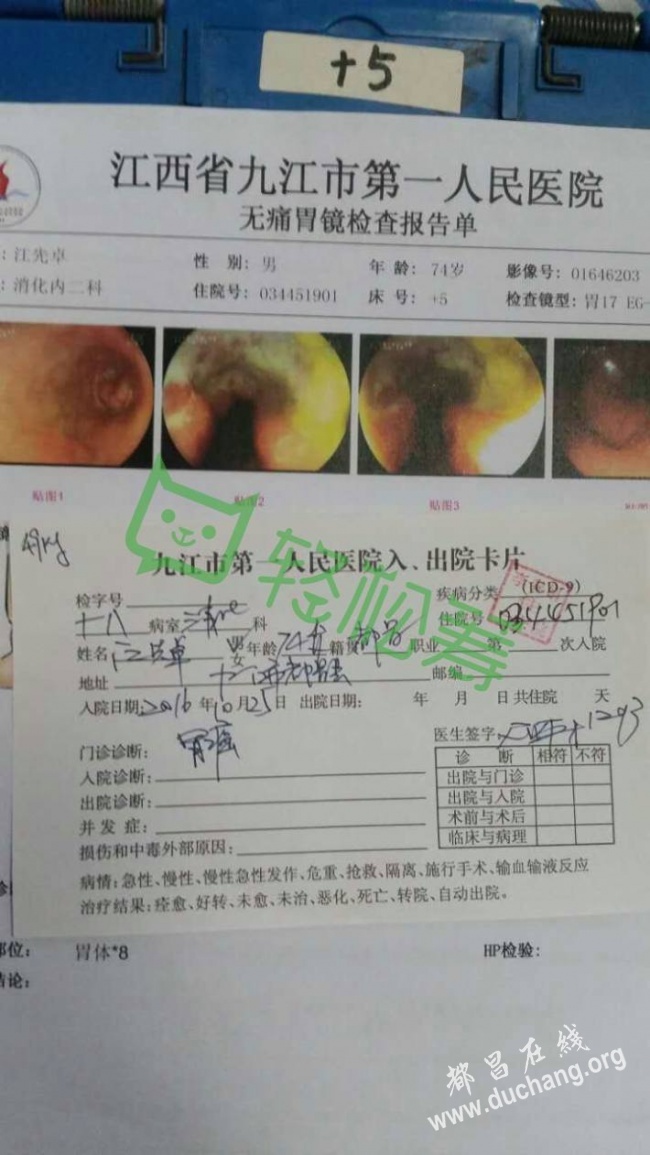 +5
江西省九江市第一人民医院
无痛胃镜检查报告单
:江先卓 性 别:男 年 龄:74岁 影像号:01646203
:消化内二科 住院号:034451901 床 号:+5 检查镜型:胃17 EG-
贴图1 贴图2 贴图3
49kg
九江市第一人民医院入、出院卡片
轻松筹
检字号 疾病分类 (ICD-9)
十八 病室 消化 科 住院号 034451901
姓名 江先卓 男 女 年龄 74岁 籍贯 都昌 职业 第 次入院
地址 邮编
入院日期:2016年10月25日 出院日期: 年 月 日 共住院 天
门诊诊断: 胃癌 医生签字
入院诊断:
出院诊断:
并发症:
损伤和中毒外部原因:
诊 断 相符 不符
出院与门诊
出院与入院
术前与术后
临床与病理
病情:急性、慢性、慢性急性发作、危重、抢救、隔离、施行手术、输血输液反应
治疗结果:痊愈、好转、未愈、未治、恶化、死亡、转院、自动出院。
部位: 胃体*8 HP检验:
结论:
都昌在线
www.duchang.org